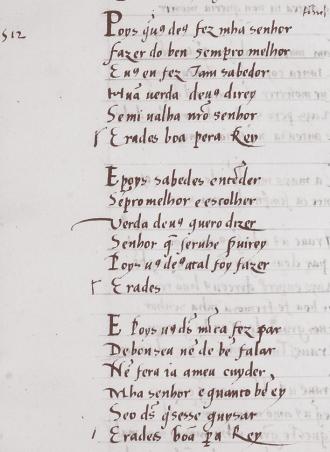 512
Poys q̃ uꝯ deꝯ fez mha senhor
fazer do ben sempro melhor
E uꝯ en fez tam sabedor
hũa verda deuꝯ direy
Se mi ualha nr̃o senhor
Erades boa pera Rey
E poys sabedes entẽder
Sẽpro melhor e escolher
Verda deuꝯ quero dizer
Senhor q̃ seruhe s̃uirey
Poys uꝯ deꝯ atal foy fazer
Erades
E Poys uꝯ ds̃ nũca fez par
De bon sen nẽ de bẽ falar
Nẽ fera ia a meu cuyder
Mha senhor e quanto bẽ ey
Seo ds̃ q̃sesse guysar
Erades boã pa Rey